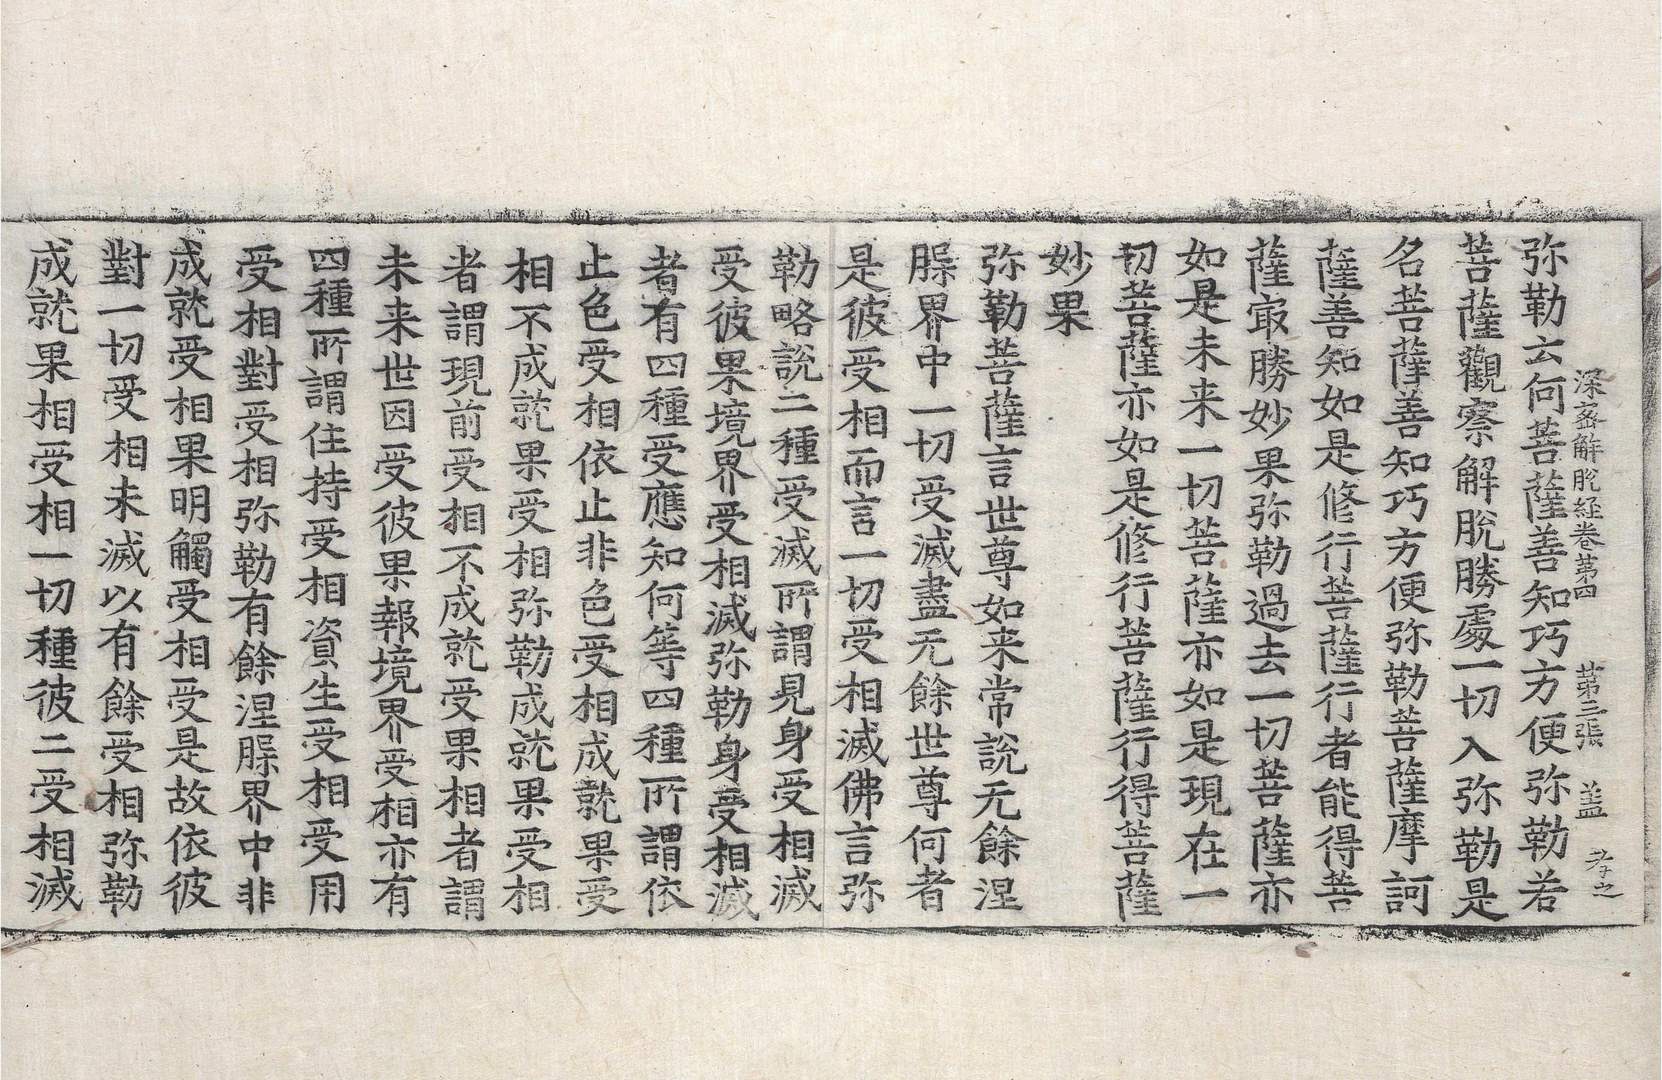 深密解脫経巻第四　第三張　盖　孝之
弥勒云何菩薩善知巧方便弥勒若
菩薩觀察解脫勝處一切入弥勒是
名菩薩善知巧方便弥勒菩薩摩訶
薩善知如是修行菩薩行者能得菩
薩㝡勝妙果弥勒過去一切菩薩亦
如是未来一切菩薩亦如是現在一
切菩薩亦如是修行菩薩行得菩薩
妙果
弥勒菩薩言世尊如来常說无餘涅
槃界中一切受滅盡无餘世尊何者
是彼受相而言一切受相滅佛言弥
勒略說二種受滅所謂見身受相滅
受彼果境界受相滅弥勒身受相滅
者有四種受應知何等四種所謂依
止色受相依止非色受相成就果受
相不成就果受相弥勒成就果受相
者謂現前受相不成就受果相者謂
未来世因受彼果報境界受相亦有
四種所謂住持受相資生受相受用
受相對受相弥勒有餘涅槃界中非
成就受相果明觸受相受是故依彼
對一切受相未滅以有餘受相弥勒
成就果相受相一切種彼二受相滅